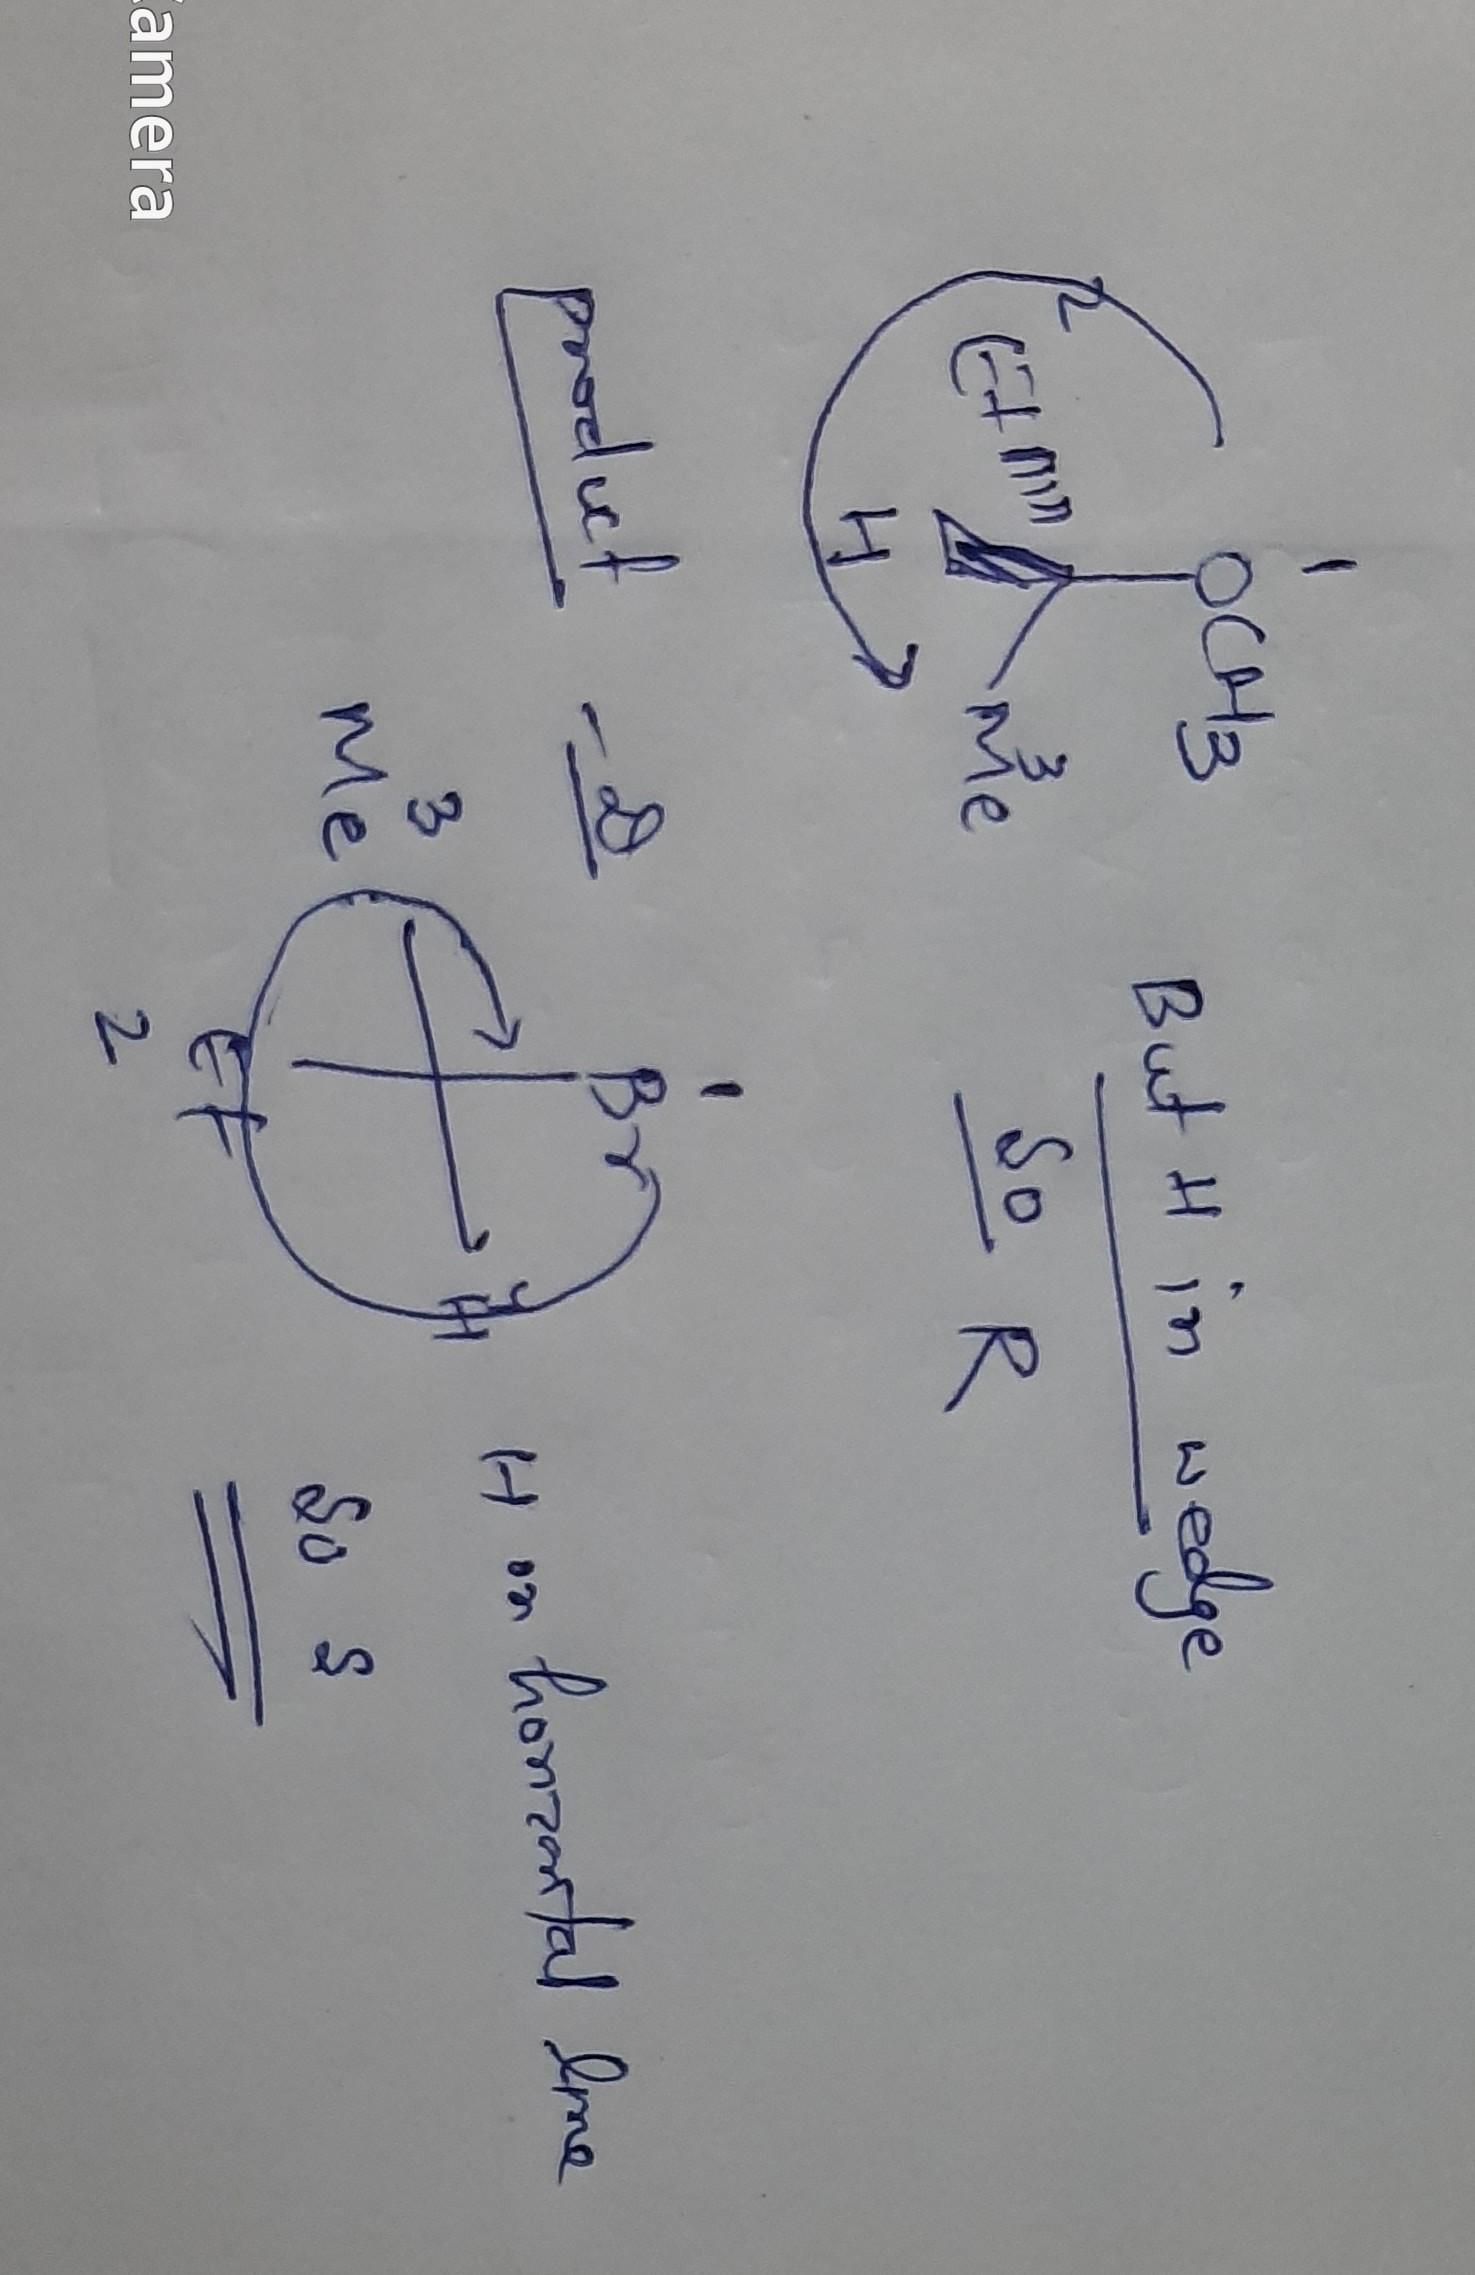 1
OCH3
2
Et
H
3
Me
But H in wedge
So R
Product - 8
1
Br
3
Me
4
H
Et
2
H on horizontal line
So S
Camera